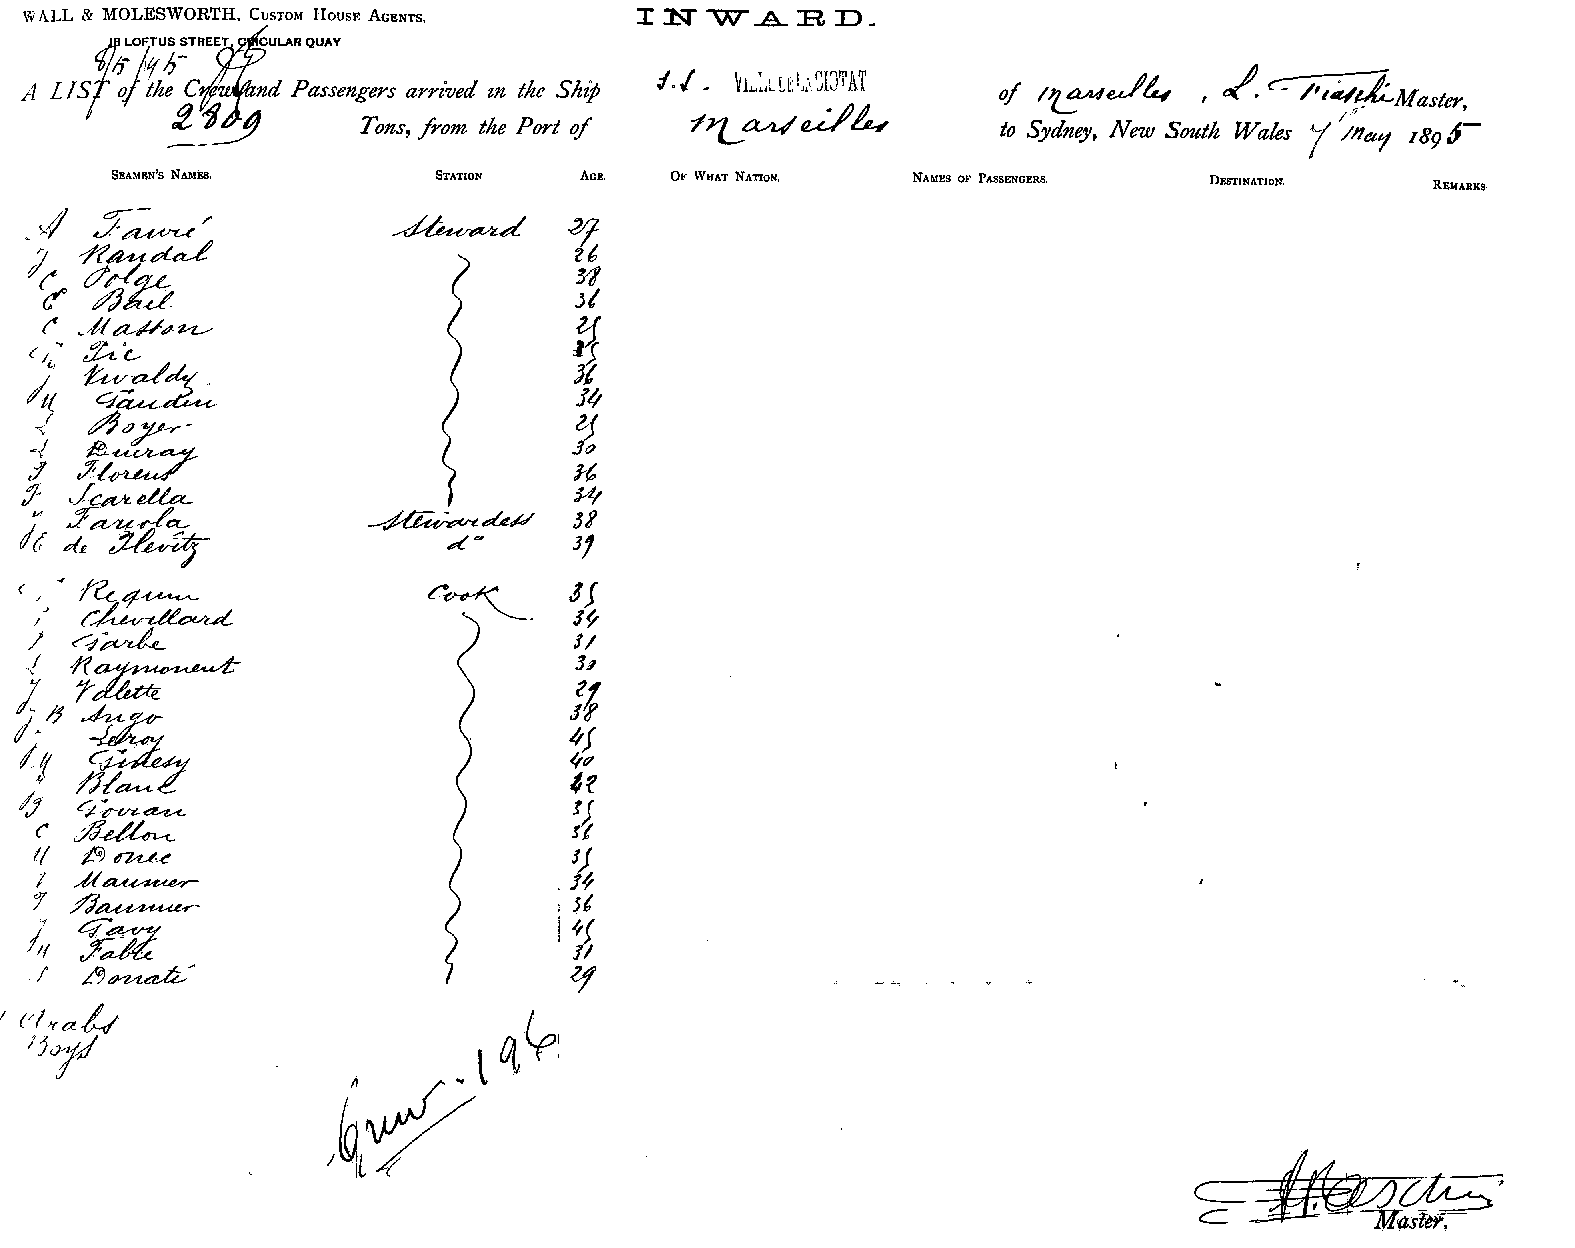 WALL & MOLESWORTH, CUSTOM HOUSE AGENTS, INWARD.
18 LOFTUS STREET, CIRCULAR QUAY
8/5/95
A LIST of the Crew and Passengers arrived in the Ship S.S. VILLE DE LA CIOTAT of Marseilles, L. Fiaschi Master,
2809 Tons, from the Port of Marseilles to Sydney, New South Wales 7 May 1895
SEAMEN'S NAMES. STATION AGE. OF WHAT NATION. NAMES OF PASSENGERS. DESTINATION. REMARKS
A Favré Steward 27
J Randal 26
C Polge 38
E Bail 36
C Masson 25
Pie 35
J Vivaldy 36
M Gaudin 34
L Boyer 25
L Duray 30
J Florens 36
F Scarella 34
Fariola Stewardess 38
de Tlevitz do 39
Requin Cook 35
Chevillard 34
Garbe 31
L Raymonent 30
J Valette 29
J B Ango 38
Leroy 45
Ginesy 40
Blanc 42
Govran 35
C Bellon 36
Donec 35
Maunier 34
Baumier 36
J Gavy 45
Fabre 31
Donati 29
Arabs
Boys
Crew - 196
Master.